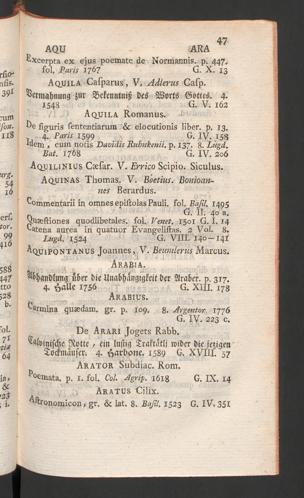 47
AQU ARA
Excerpta ex ejus poemate de Normannis. p. 447.
fol. Paris 1767 G. X. 13
AQUILA Casparus, V. Adlerus Casp.
Vermahnung zur Bekentniß des Worts Gottes. 4.
1548 G. V. 162
AQUILA Romanus.
De figuris sententiarum & elocutionis liber. p. 13.
4. Paris 1599 G. IV. 158
Idem, cum notis Davidis Ruhnkenii. p. 137. 8. Lugd.
Bat. 1768 G. IV. 206
AQUILINIUS Cæsar. V. Errico Scipio. Siculus.
AQUINAS Thomas. V. Boetius. Bonioan-
nes Berardus.
Commentarii in omnes epistolas Pauli. fol. Basil. 1495
G. II. 40 a.
Quæstiones quodlibetales. fol. Venet. 1501 G. I. 14
Catena aurea in quatuor Evangelistas. 2 Vol. 8.
Lugd. 1524 G. VIII. 140-141
AQUIPONTANUS Joannes, V. Beumlerus Marcus.
ARABIA.
Abhandlung über die Unabhängigkeit der Araber. p. 317.
4. Halle 1756 G. XIII. 178
ARABIUS.
Carmina quædam. gr. p. 109. 8. Argentor. 1776
G. IV. 223 c.
De ARARI Jogets Rabb.
Calvinische Rotte, ein lustig Traktätl wider die jetzigen
Tockmäuser. 4. Harbone. 1589 G. XVIII. 57
ARATOR Subdiac. Rom.
Poemata. p. 1. fol. Col. Agrip. 1618 G. IX. 14
ARATUS Cilix.
Astronomicon, gr. & lat. 8. Basil. 1523 G. IV. 351